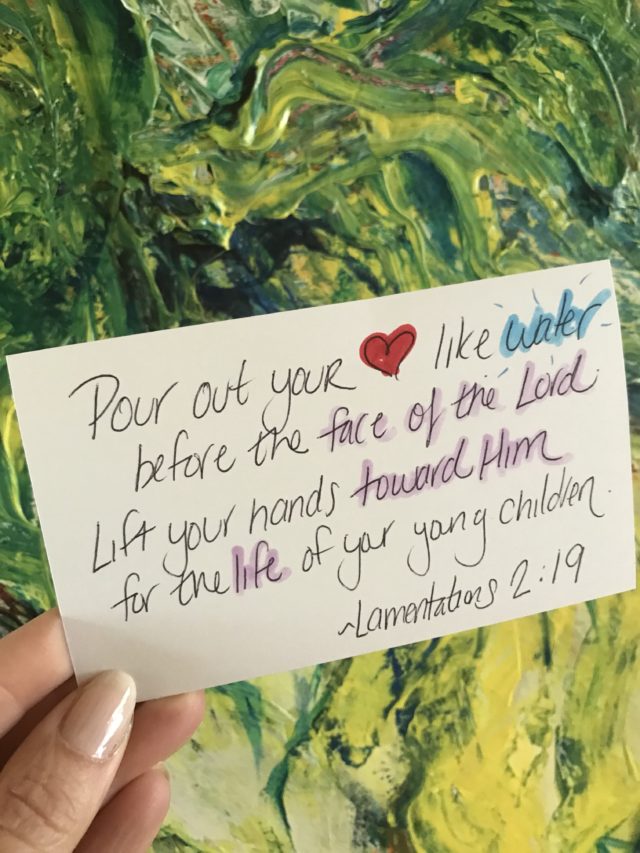 Pour out your ❤ like water
before the face of the Lord.
Lift your hands toward Him
for the life of your young children.
~Lamentations 2:19